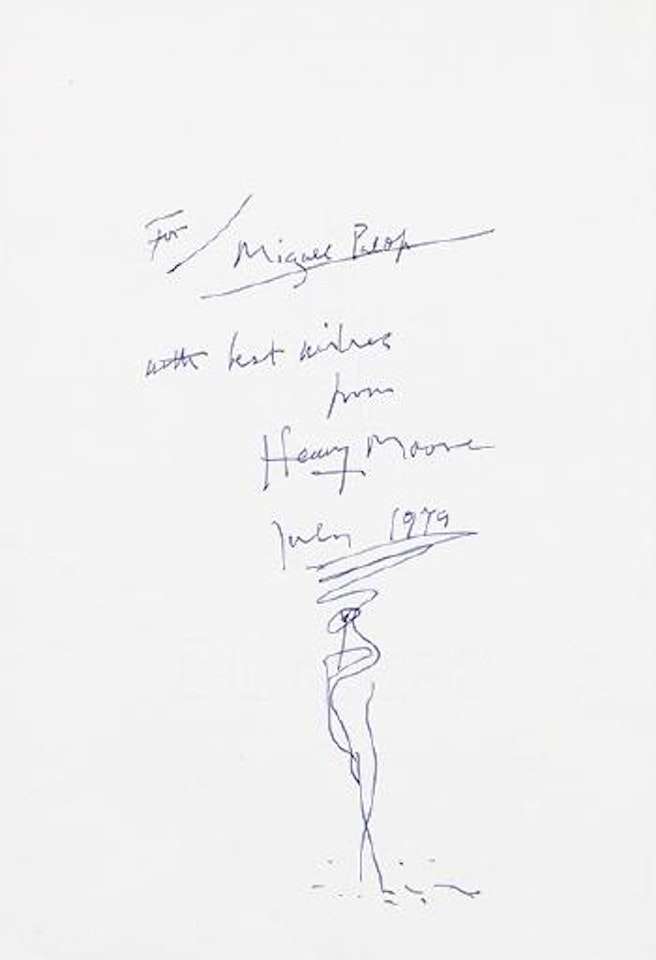 For / Miguel Palop
with best wishes
from
Henry Moore
July 1979